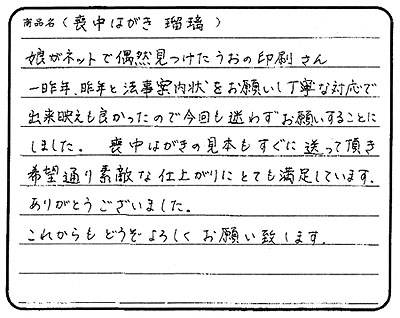 商品名(喪中はがき 瑠璃)
娘がネットで偶然見つけたうおの印刷さん
一昨年、昨年と法事案内状をお願いし丁寧な対応で
出来映えも良かったので今回も迷わずお願いすることに
しました。 喪中はがきの見本もすぐに送って頂き
希望通り素敵な仕上がりにとても満足しています。
ありがとうございました。
これからもどうぞよろしくお願い致します。